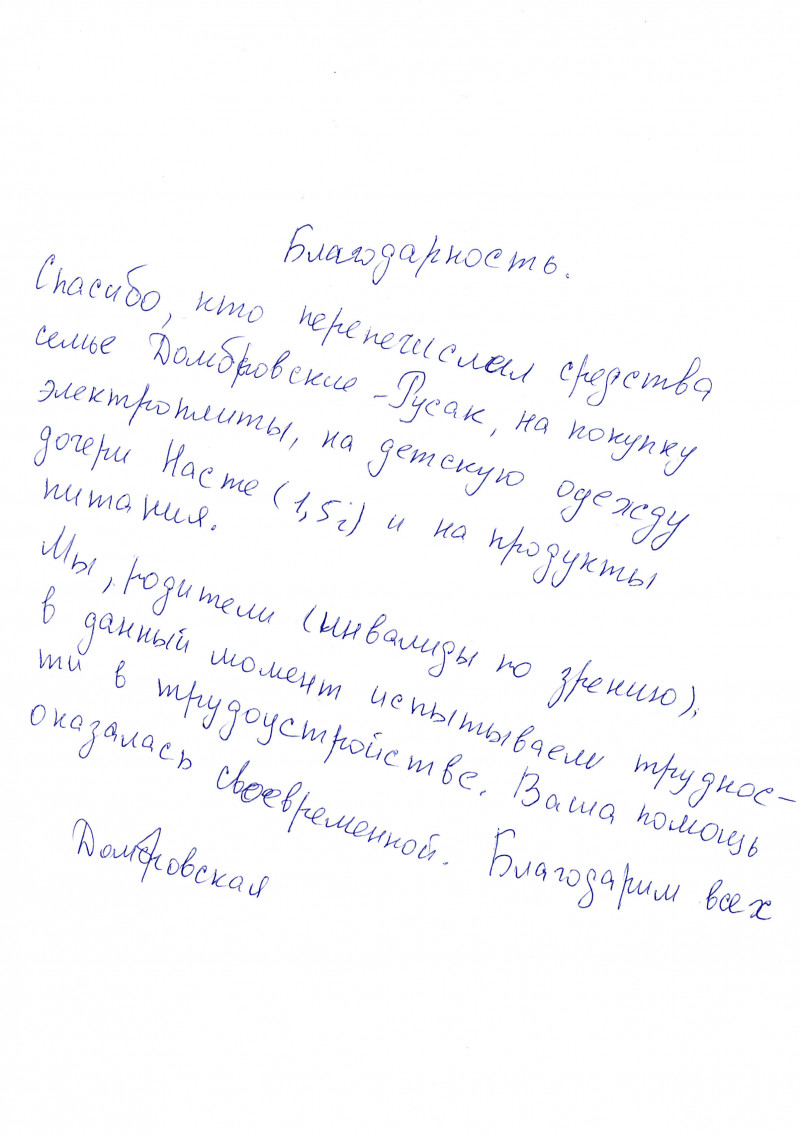 Благодарность.
Спасибо, кто перепечислял средства
семье Домбровские-Русак, на покупку
электроплиты, на детскую одежду
дочери Насте (1,5г) и на продукты
питания.
Мы, родители (инвалиды по зрению),
в данный момент испытываем труднос-
ти в трудоустройстве. Ваша помощь
оказалась своевременной. Благодарим всех
Домбровская